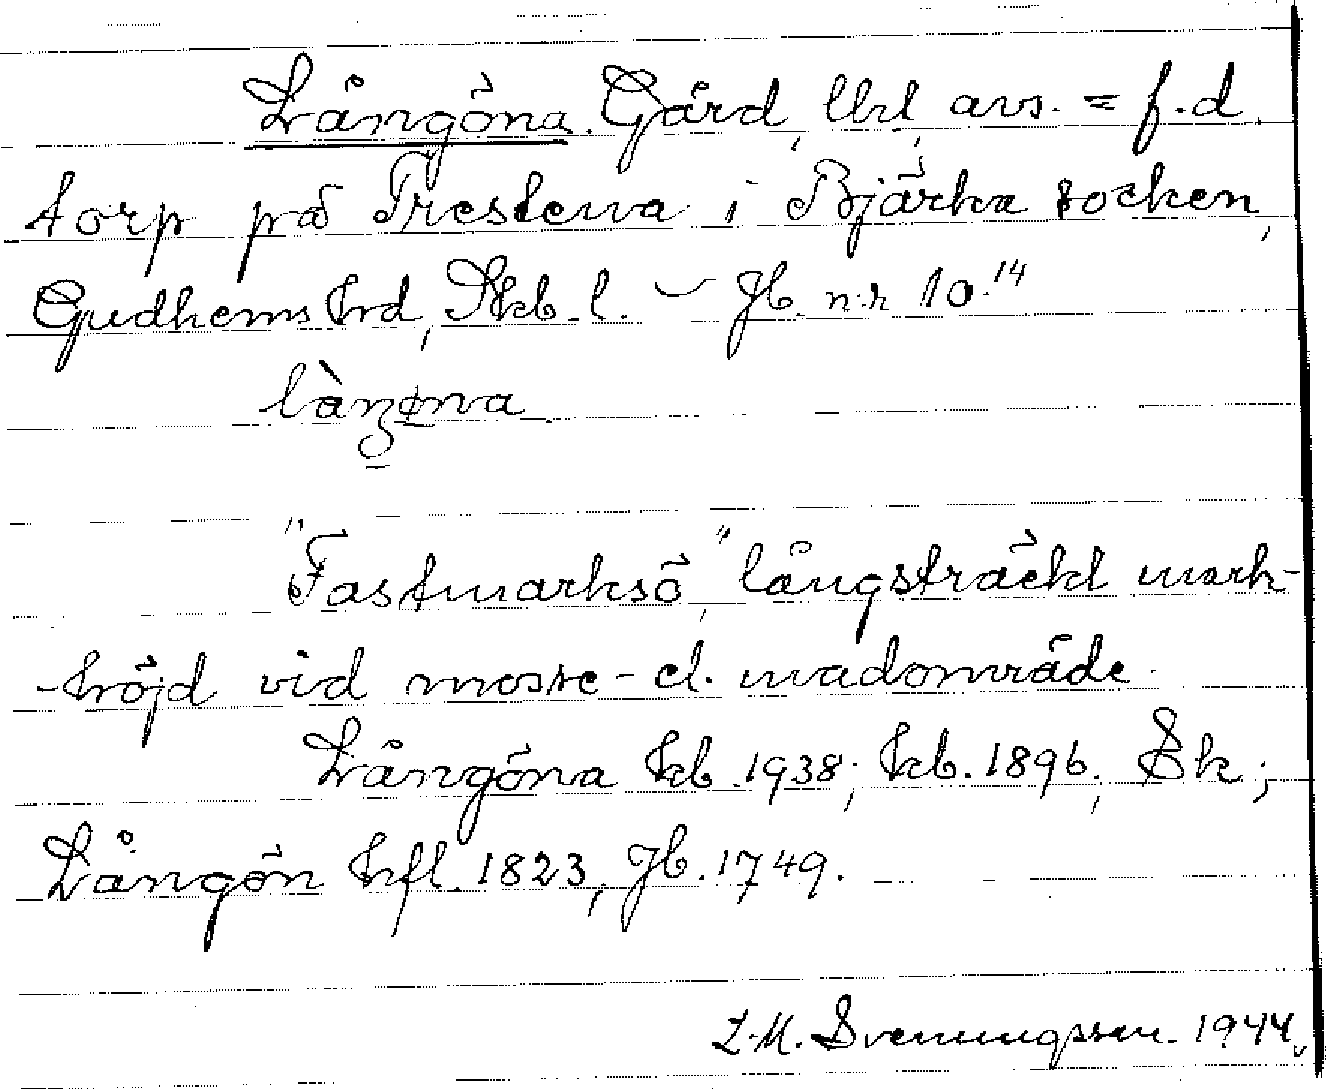 Långöna. Gård, lht, avs. = f.d.
torp på Trestena i Bjärka socken,
Gudhems hrd, Skb. l. – Jb. nr 10.14
"Fastmarksö", långsträckt mark-
-höjd vid mosse- el. madområde.
Långöna kb. 1938; kb. 1896; Sk;
Långön hfl. 1823, Jb. 1749.
L.M. Svenungsson. 1944.